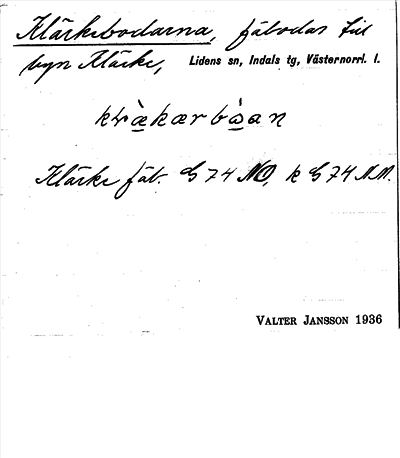 Klärkebodarna, fäbodar till
byn Klärke, Lidens sn, Indals tg, Västernorrl. l.
Klärke fäb. G 74 NO, k G 74 NN.
VALTER JANSSON 1936